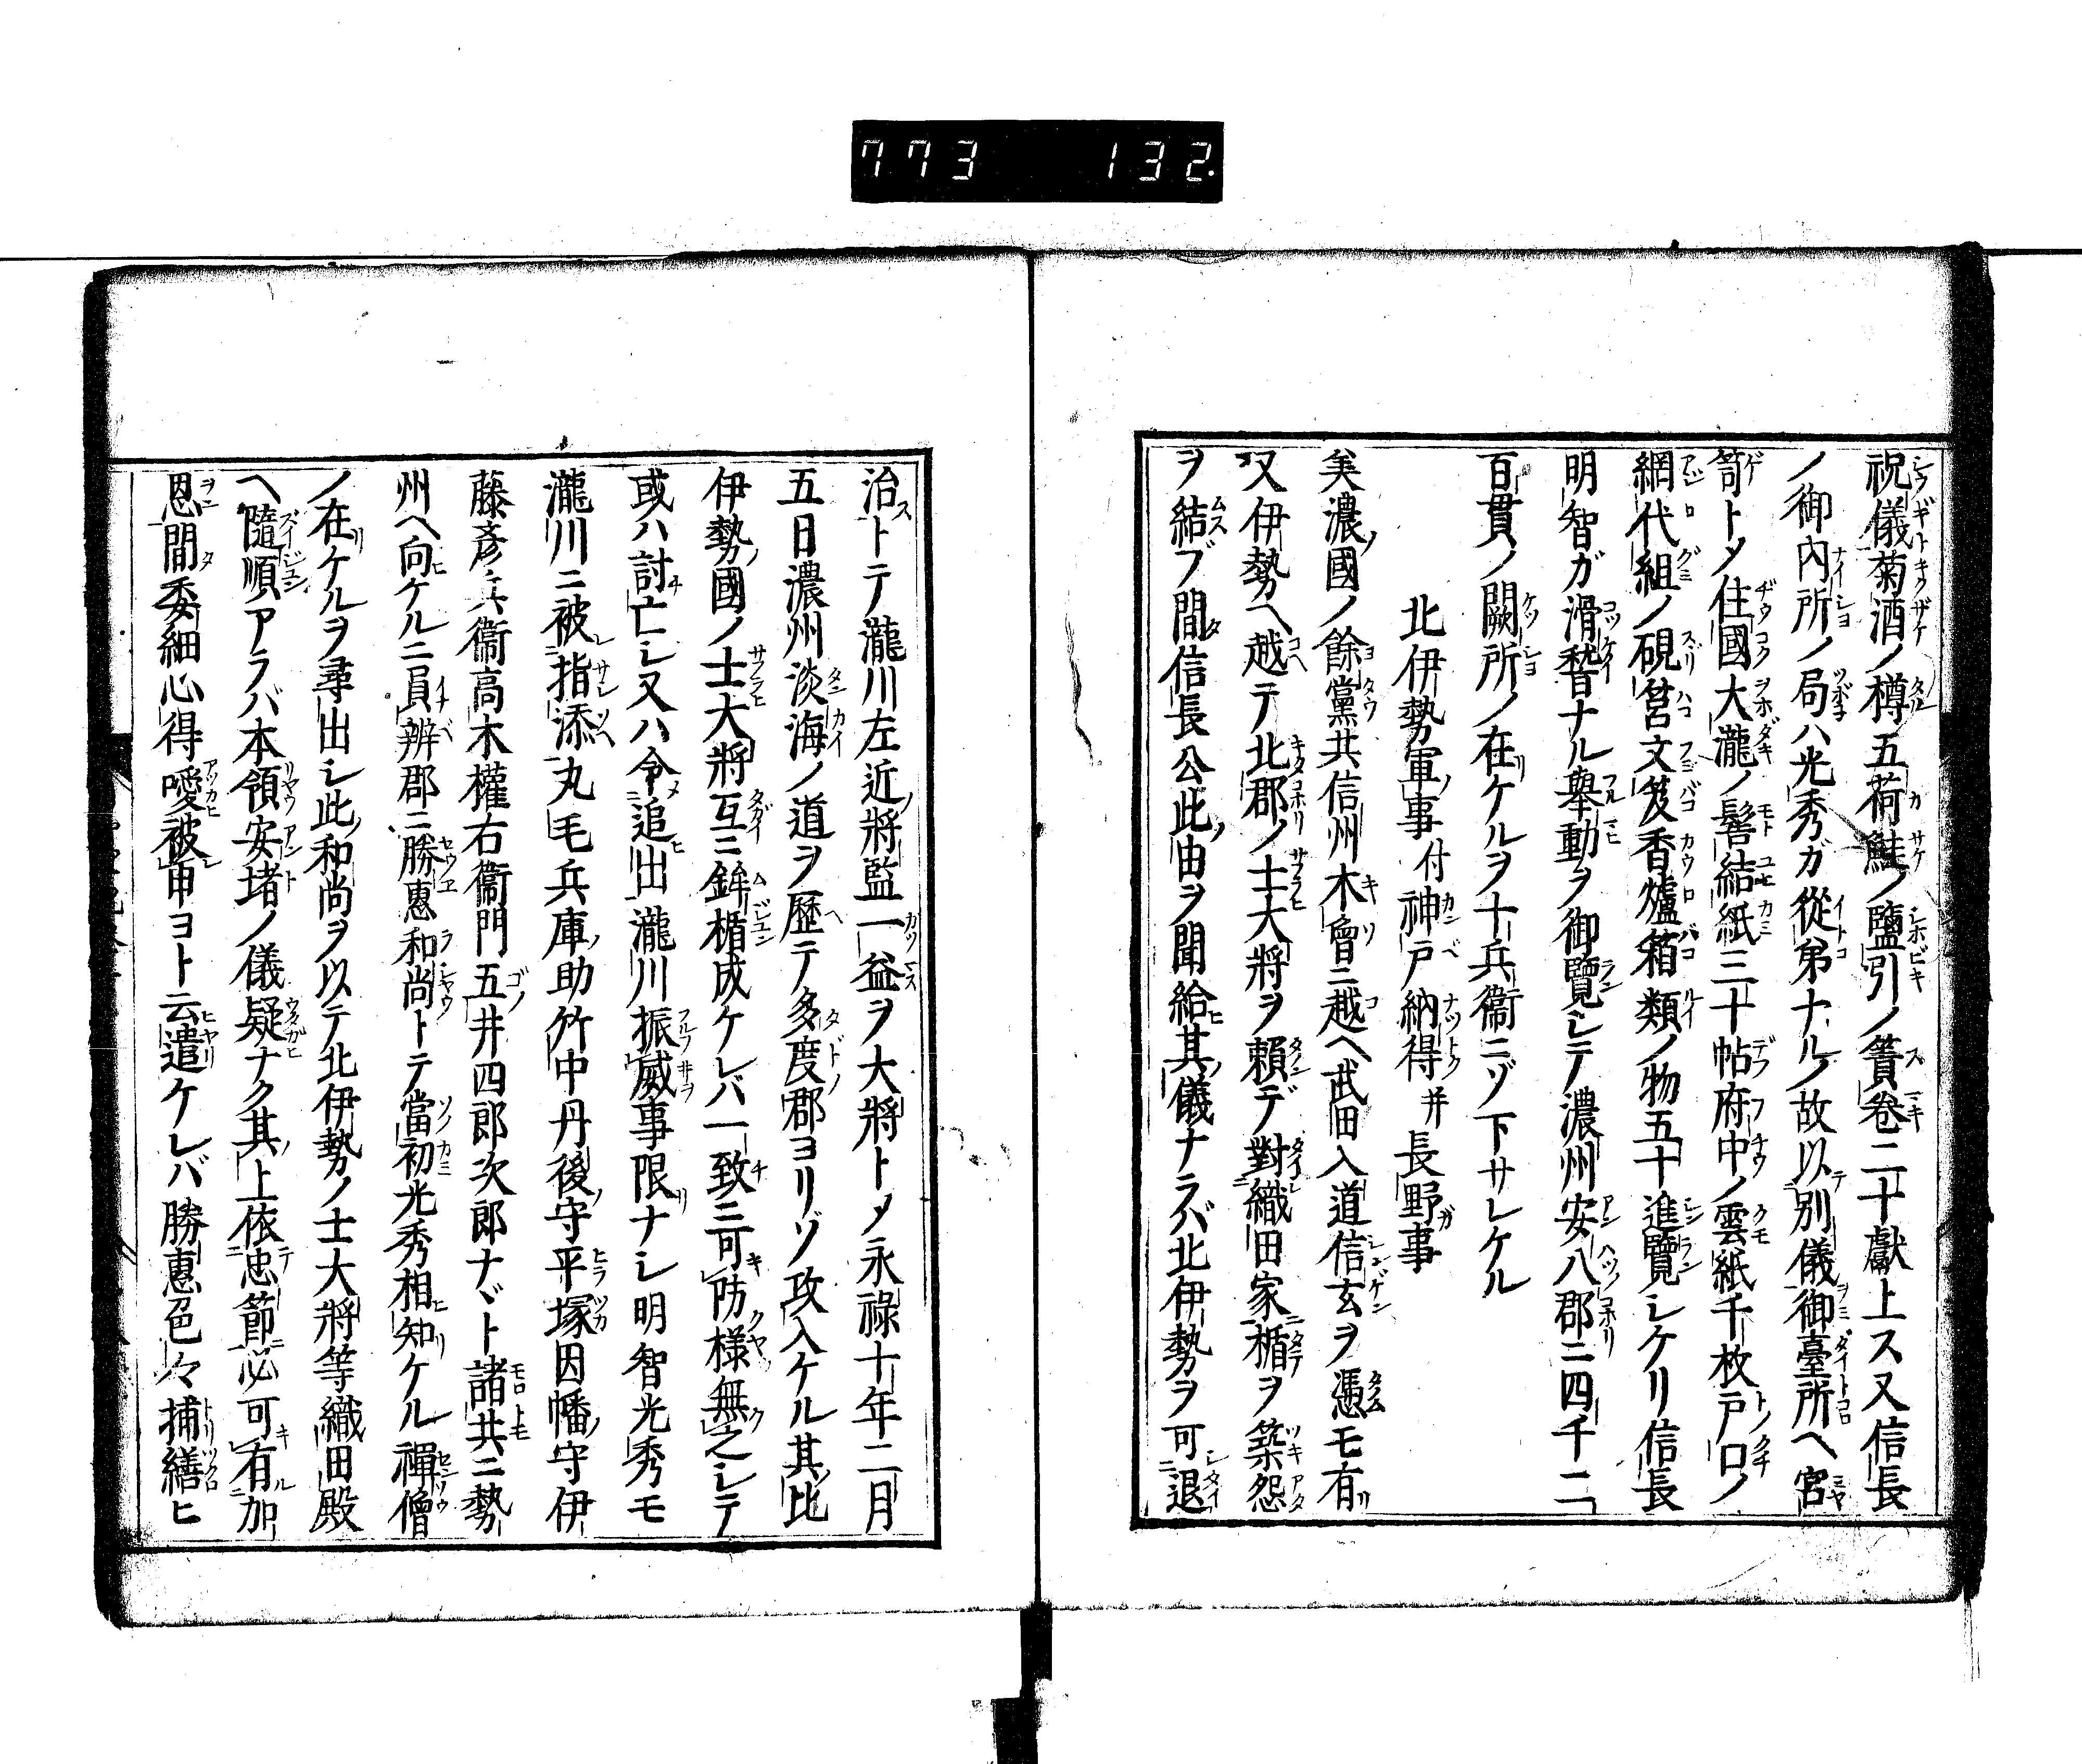 773 132.
祝儀菊酒ノ樽五荷鮭ノ鹽引ノ簀卷二十獻上ス又信長
ノ御内所ノ局ハ光秀ガ從弟ナルノ故以別儀御臺所ヘ宮
笥トメ住國大瀧ノ髻結紙三十帖府中ノ雲紙千枚戸口ノ
網代組ノ硯筥文笈香爐箱類ノ物五十進覽シケリ信長
明智ガ滑稽ナル擧動ヲ御覽シテ濃州安八郡ニ四千二
百貫ノ闕所ノ在ケルヲ十兵衞ニゾ下サレケル
北伊勢軍事付神戸納得并長野事
美濃國ノ餘黨共信州木曾ニ越ヘ武田入道信玄ヲ憑モ有
又伊勢ヘ越テ北郡ノ士大將ヲ頼デ對織田家楯ヲ築怨
ヲ結ブ間信長公此由ヲ聞給其儀ナラバ北伊勢ヲ可退
治トテ瀧川左近將監一益ヲ大將トメ永祿十年二月
五日濃州淡海ノ道ヲ歷テ多度郡ヨリゾ攻入ケル其比
伊勢國ノ士大將互ニ鉾楯成ケレバ一致ニ可防様無之シテ
或ハ討亡シ又ハ令追出瀧川振威事限ナシ明智光秀モ
瀧川ニ被指添丸毛兵庫助竹中丹後守平塚因幡守伊
藤彥兵衞高木權右衞門五井四郎次郎ナド諸共ニ勢
州ヘ向ケルニ員辨郡ニ勝惠和尚トテ當初光秀相知ケル禪僧
ノ在ケルヲ尋出シ此和尚ヲ以テ北伊勢ノ士大將等織田殿
ヘ隨順アラバ本領安堵ノ儀疑ナク其上依忠節必可有加
恩間委細心得噯被申ヨト云遣ケレバ勝惠色々捕繕ヒ